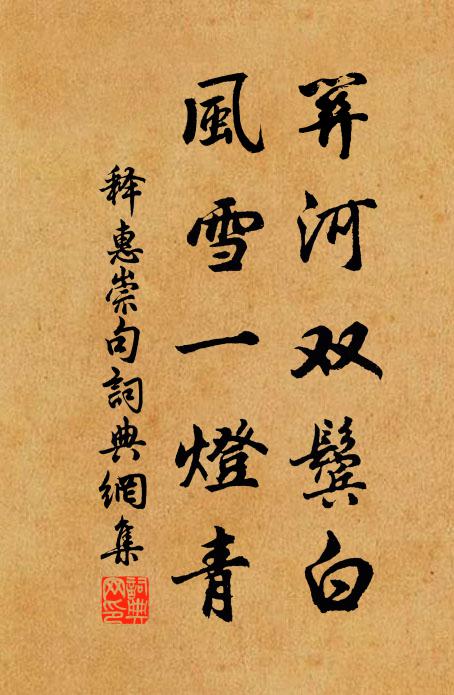 关河双鬓白
風雪一燈青
释惠崇句詞典網集
詞典
网印